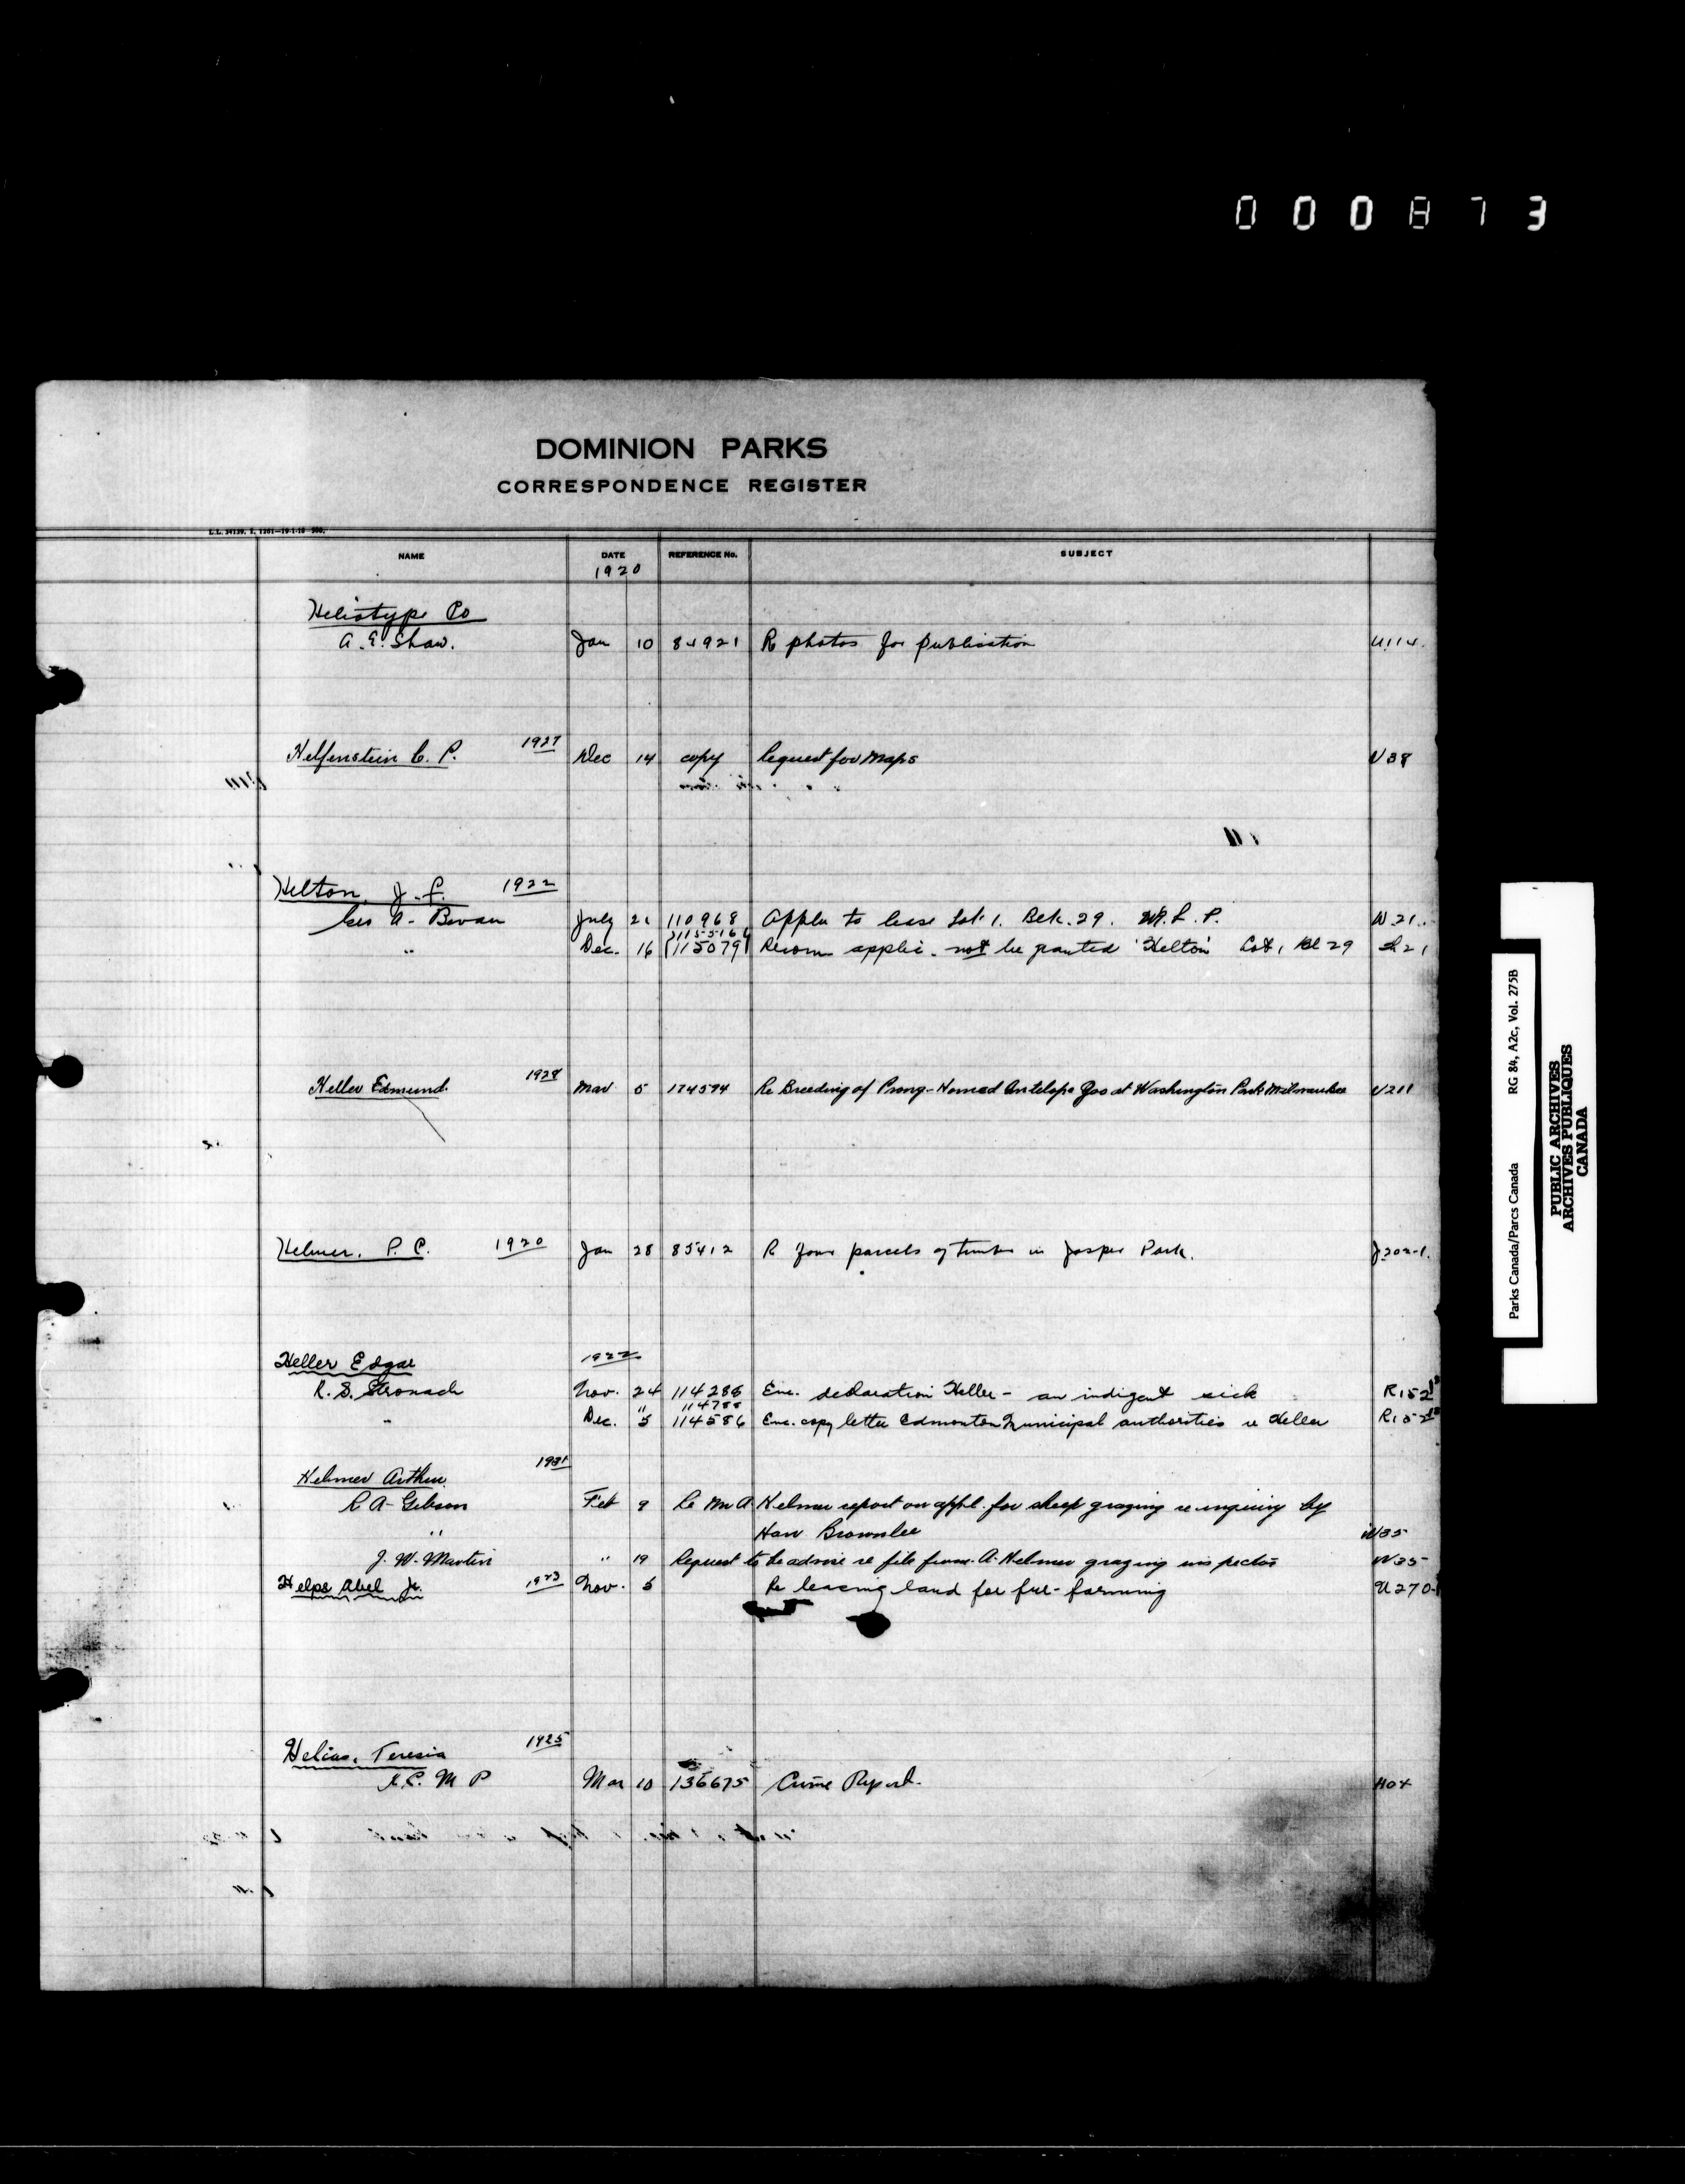 000873
DOMINION PARKS
CORRESPONDENCE REGISTER
NAME DATE REFERENCE No. SUBJECT
1920
Heliotype Co
A. E. Shaw. Jan 10 84921 R photos for publication U114.
Helfenstein C. P. 1927 Dec 14 copy Request for Maps U38
Helton, J. f. 1922
Geo A. Bevan July 21 110968 Applu to lease Lot 1. Belk. 29. W. L. P. W21.
115516
" Dec. 16 115079 Recom applic. not be granted 'Helton' Lot 1 Bl 29 21
Heller Edmund. 1928 Mar 5 174594 Re Breeding of Prong-Horned Antelope Zoo at Washington Park Milwaukee U211
Helmer, P. C. 1920 Jan 28 85412 R four parcels of timber in Jasper Park. J202-1.
Heller Edgar 1922
R. S. Stronach Nov. 24 114286 Enc. declaration Heller - an indigent sick R152
" 114788
" Dec. 5 114586 Enc. copy letter Edmonton Municipal authorities re Heller R152
Helmer Arthur 1931
C A Gibson Feb 9 Re Mr A Helmer report on appl. for sheep grazing re inquiry by
" Hon Brownlee W35
J. W. Martin " 19 Request to be advise re file from A. Helmer grazing inspector W35
Helps Abel Jr. 1923 Nov. 5 Re leasing land for fur-farming U270-1
Helias, Teresia 1925
R.C. M P Mar 10 136675 Crime Report. H04
Parks Canada/Parcs Canada RG 84, A2c, Vol. 275B
PUBLIC ARCHIVES
ARCHIVES PUBLIQUES
CANADA